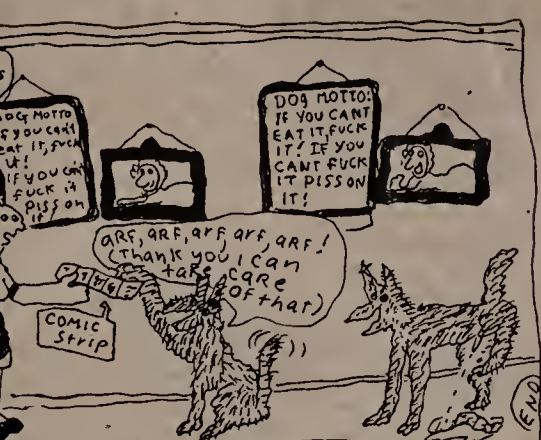 DOG MOTTO
if you can't
eat it, fuck
it!
If you can't
fuck it
piss on
it!
DOG MOTTO:
IF YOU CANT
EAT IT, FUCK
IT! IF YOU
CANT FUCK
IT PISS ON
IT!
ARF, ARF, arf, arf, ARF!
(Thank you I can
take CARE
OF that)
COMIC
Strip
END